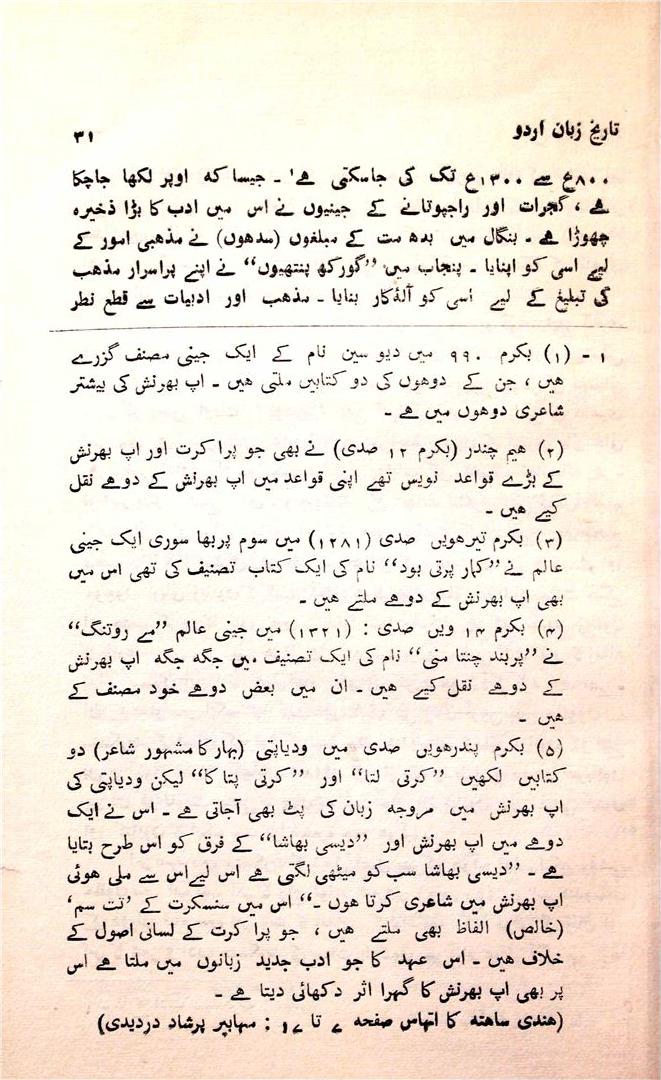 تاریخ زبان اردو
۳۱
۸۰۰ع سے ۱۳۰۰ع تک کی جاسکتی ہے' ۔ جیسا کہ اوپر لکھا جاچکا
ہے ، گجرات اور راجپوتانے کے جینیوں نے اس میں ادب کا بڑا ذخیرہ
چھوڑا ہے ۔ بنگال میں بدھ مت کے مبلغوں (سدھوں) نے مذہبی امور کے
لیے اسی کو اپنایا ۔ پنجاب میں ”گورکھ پنتھیوں“ نے اپنے پراسرار مذہب
کی تبلیغ کے لیے اسی کو آلۂ کار بنایا ۔ مذہب اور ادبیات سے قطع نظر
۱ - (۱) بکرم ۹۹۰ میں دیو سین نام کے ایک جینی مصنف گزرے
ہیں ، جن کے دوہوں کی دو کتابیں ملتی ہیں ۔ اپ بھرنش کی بیشتر
شاعری دوہوں میں ہے ۔
(۲) ہیم چندر (بکرم ۱۲ صدی) نے بھی جو پرا کرت اور اپ بھرنش
کے بڑے قواعد نویس تھے اپنی قواعد میں اپ بھرنش کے دوہے نقل
کیے ہیں ۔
(۳) بکرم تیرھویں صدی (۱۲۸۱) میں سوم پربھا سوری ایک جینی
عالم نے ”کمار پرتی بود“ نام کی ایک کتاب تصنیف کی تھی اس میں
بھی اپ بھرنش کے دوہے ملتے ہیں ۔
(۴) بکرم ۱۴ ویں صدی : (۱۳۲۱) میں جینی عالم ”مے روتنگ“
نے ”پربند چنتا منی“ نام کی ایک تصنیف میں جگہ جگہ اپ بھرنش
کے دوہے نقل کیے ہیں ۔ ان میں بعض دوہے خود مصنف کے
ہیں ۔
(۵) بکرم پندرھویں صدی میں ودیاپتی (بہار کا مشہور شاعر) دو
کتابیں لکھیں ”کرتی لتا“ اور ”کرتی پتا کا“ لیکن ودیاپتی کی
اپ بھرنش میں مروجہ زبان کی پٹ بھی آجاتی ہے ۔ اس نے ایک
دوہے میں اپ بھرنش اور ”دیسی بھاشا“ کے فرق کو اس طرح بتایا
ہے ۔ ”دیسی بھاشا سب کو میٹھی لگتی ہے اس لیے اس سے ملی ہوئی
اپ بھرنش میں شاعری کرتا ہوں ۔“ اس میں سنسکرت کے ’تت سم‘
(خالص) الفاظ بھی ملتے ہیں ، جو پرا کرت کے لسانی اصول کے
خلاف ہیں ۔ اس عہد کا جو ادب جدید زبانوں میں ملتا ہے اس
پر بھی اپ بھرنش کا گہرا اثر دکھائی دیتا ہے ۔
(ہندی ساہتہ کا اتہاس صفحہ ۷ تا ۱۷ : مہابیر پرشاد دردیدی)